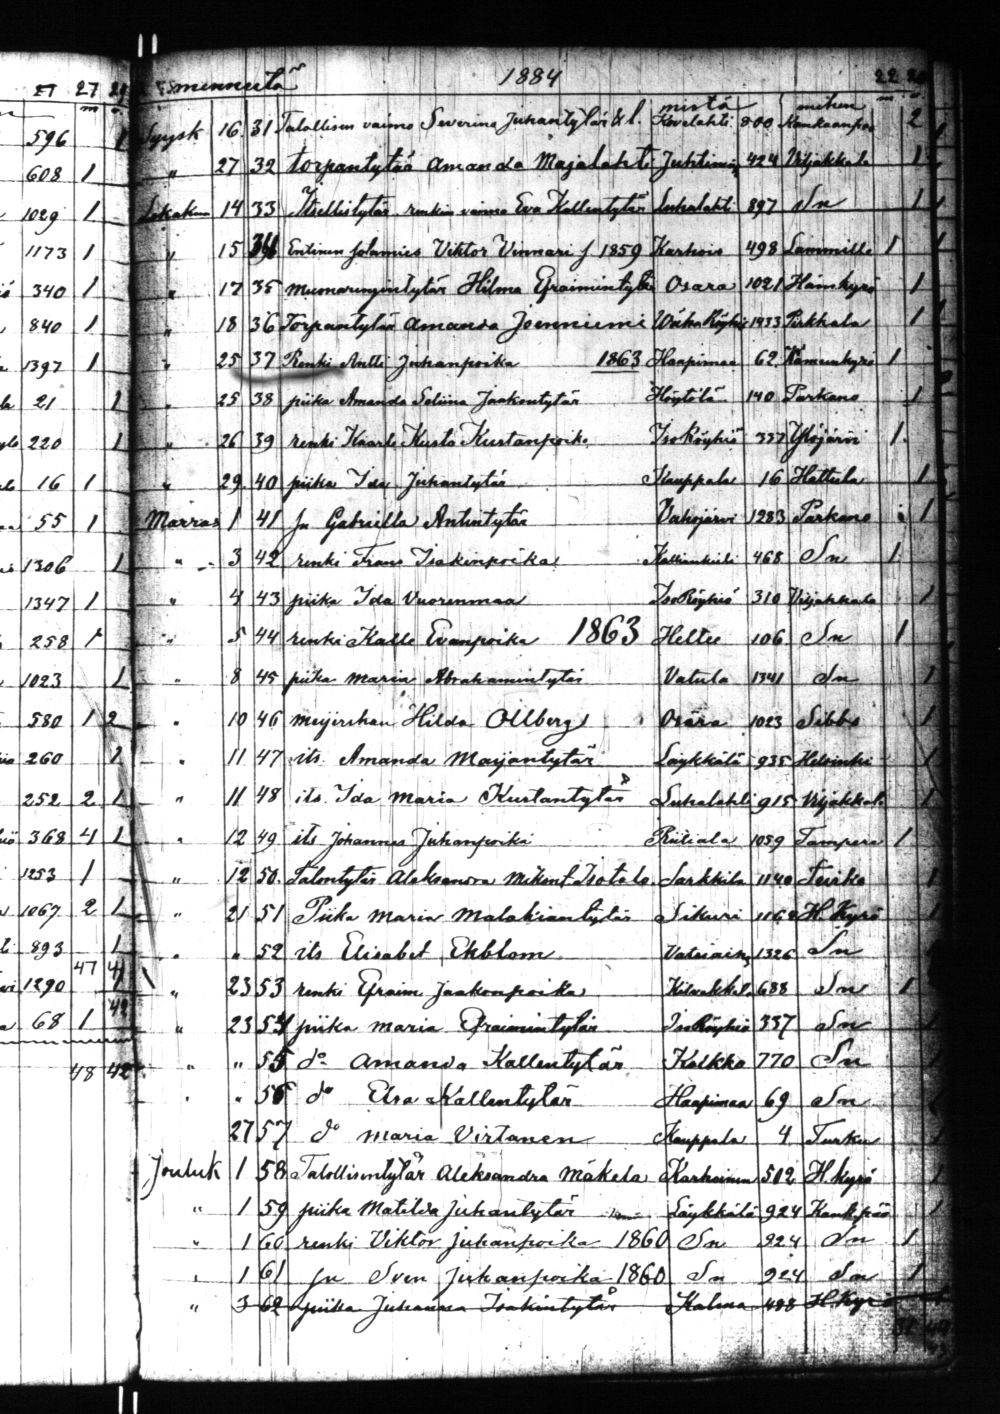 27 27 29 menneitä 1884 22 20
m mistä mihin m
596 1 Syysk 16 31 Talollisen vaimo Severina Juhantytär & l. Kovelahti 800 Kankaanpää 2
608 1 " 27 32 torpantytär Amanda Majalahti 424 Viljakkala 1
1029 1 Lokakuu 14 33 Itsellistytär renkin vaimo Eva Kallentytär Luhalahti 897 Sn 1
1173 1 " 15 34 Entinen Viktor Vinnari f 1859 Karhois 498 Lammille 1
340 1 " 17 35 Hilma Osara 1021 Hämkyrö 1
840 1 " 18 36 Torpantytär Amanda Joenniemi 1433 Pirkkala 1
1397 1 " 25 37 Renki Antti Juhanpoika 1863 Haapimaa 62 1
21 1 " 25 38 piika Amanda Seliina Jaakontytär Höytölä 140 Parkano 1
220 1 " 26 39 renki Kaarle Kusta Kustanpoika IsoRöyhiö 337 Ylöjärvi 1
16 1 " 29 40 piika Ida Juhantytär Kauppala 16 Hattula 1
55 1 Marras 1 41 Jn Gabriella Antintytär Vahojärvi 1283 Parkano 1
1306 1 " 3 42 renki Frans Isakinpoika 468 Sn 1
1347 1 " 4 43 piika Ida Vuorenmaa IsoRöyhiö 310 Viljakkala 1
258 1 " 5 44 renki Kalle Evanpoika 1863 Heltee 106 Sn 1
1023 1 " 8 45 piika Maria Abrahamintytär Vatula 1341 Sn 1
580 1 2 " 10 46 meijerskan Hilda Ollberg Osara 1023 Sibbo 1
260 1 " 11 47 its. Amanda Marjantytär Läykkälä 935 Helsinki 1
252 2 1 " 11 48 its. Ida Maria Kustantytär Luhalahti 915 Viljakkala 1
368 4 1 " 12 49 its Johannes Juhanpoika Riitiala 1059 Tampere 1
1253 1 " 12 50 Talontytär Aleksandra Isotalo Sarkkila 1140 Teisko 1
1067 2 1 " 21 51 Piika Maria Malakiantytär Sikuri H.Kyrö 1
893 1 " " 52 its Elisabet Ekblom 1326 Sn
47 41
1290 1 " 23 53 renki Efraim Jaakonpoika Kilvakkala 688 Sn 1
68 1 42 " 23 54 piika Maria Efraimintytär IsoRöyhiö 337 Sn
48 42 " " 55 do Amanda Kallentytär Kolkko 770 Sn
" " 56 do Elsa Kallentytär Haapimaa 69 Sn
27 57 do Maria Virtanen Kauppala 4 Turku
Jouluk 1 58 Talollisentytär Aleksandra Mäkelä Karhoinen 512 H.Kyrö 1
" 1 59 piika Matilda Juhantytär Läykkälä 924 Kankpää 1
" 1 60 renki Viktor Juhanpoika 1860 Sn 924 Sn 1
" 1 61 Jn Sven Juhanpoika 1860 Sn 924 Sn 1
" 3 62 piika Juhanna Isakintytär Kalma 498 H.Kyrö